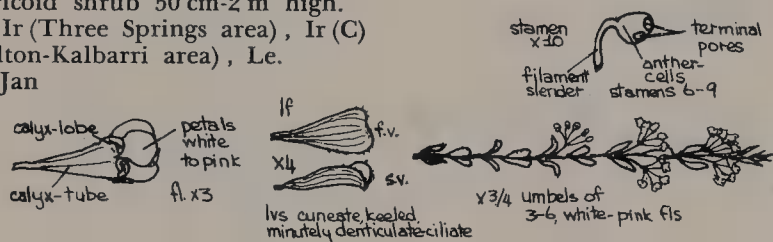 ricoid shrub 50 cm-2 m high.
Ir (Three Springs area), Ir (C)
lton-Kalbarri area), Le.
Jan
stamen
x10
terminal
pores
filament
slender
anther-
cells
stamens 6-9
calyx-lobe
petals
white
to pink
calyx-tube
fl. x3
lf
f.v.
x4
s.v.
lvs cuneate, keeled,
minutely denticulate-ciliate
x3/4 umbels of
3-6, white-pink fls